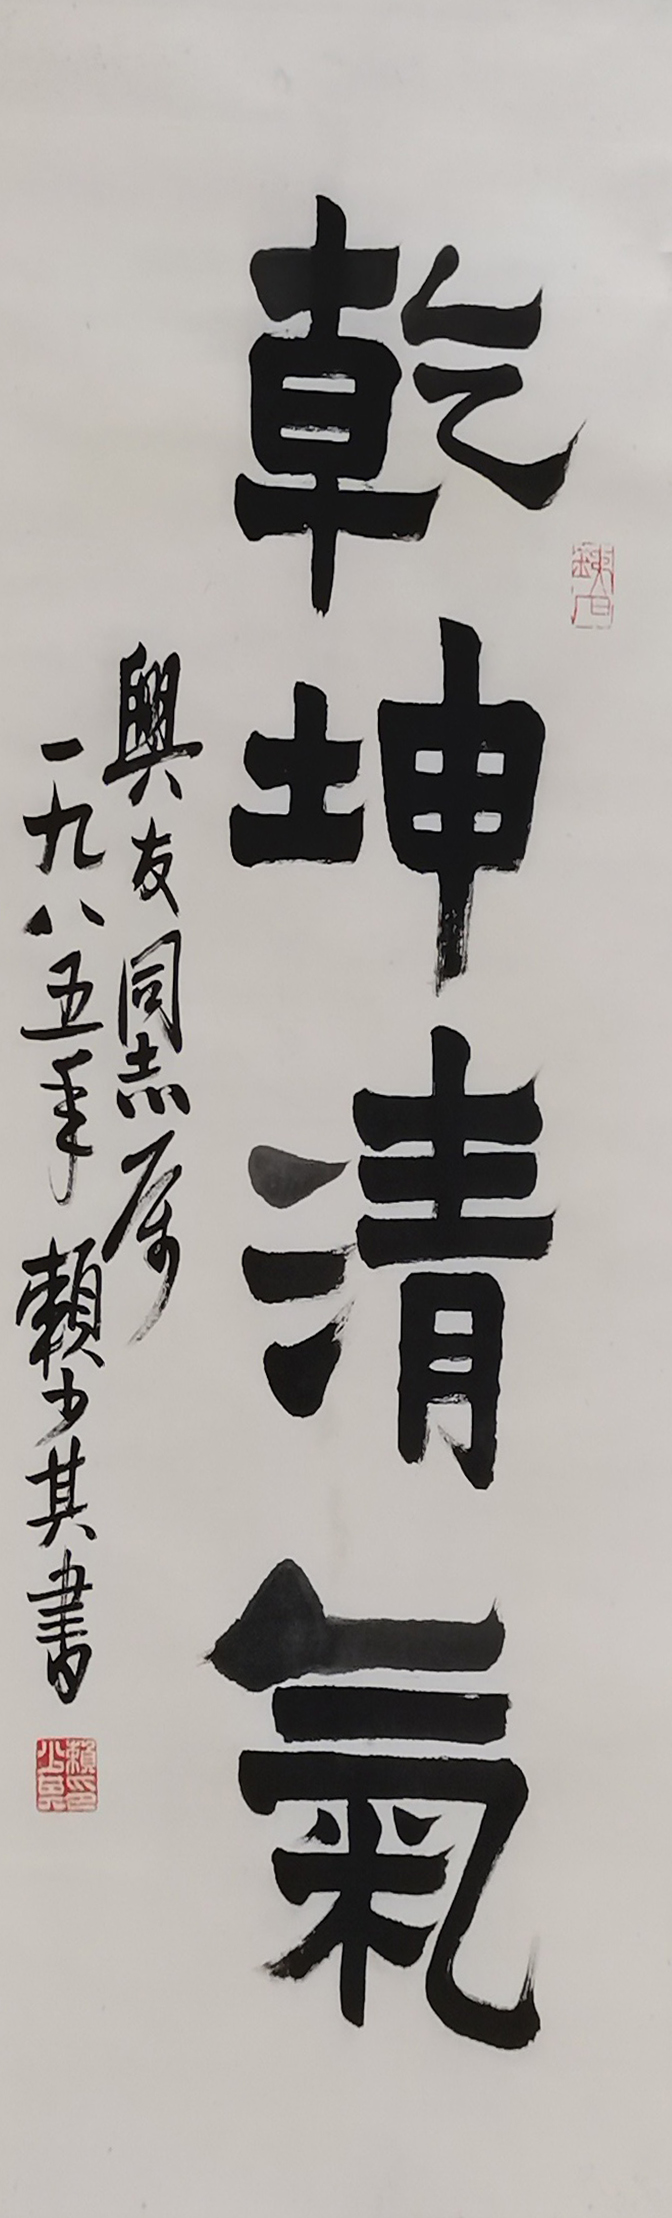 乾坤清氣
興友同志属
一九八五年 賴少其書
賴少其印